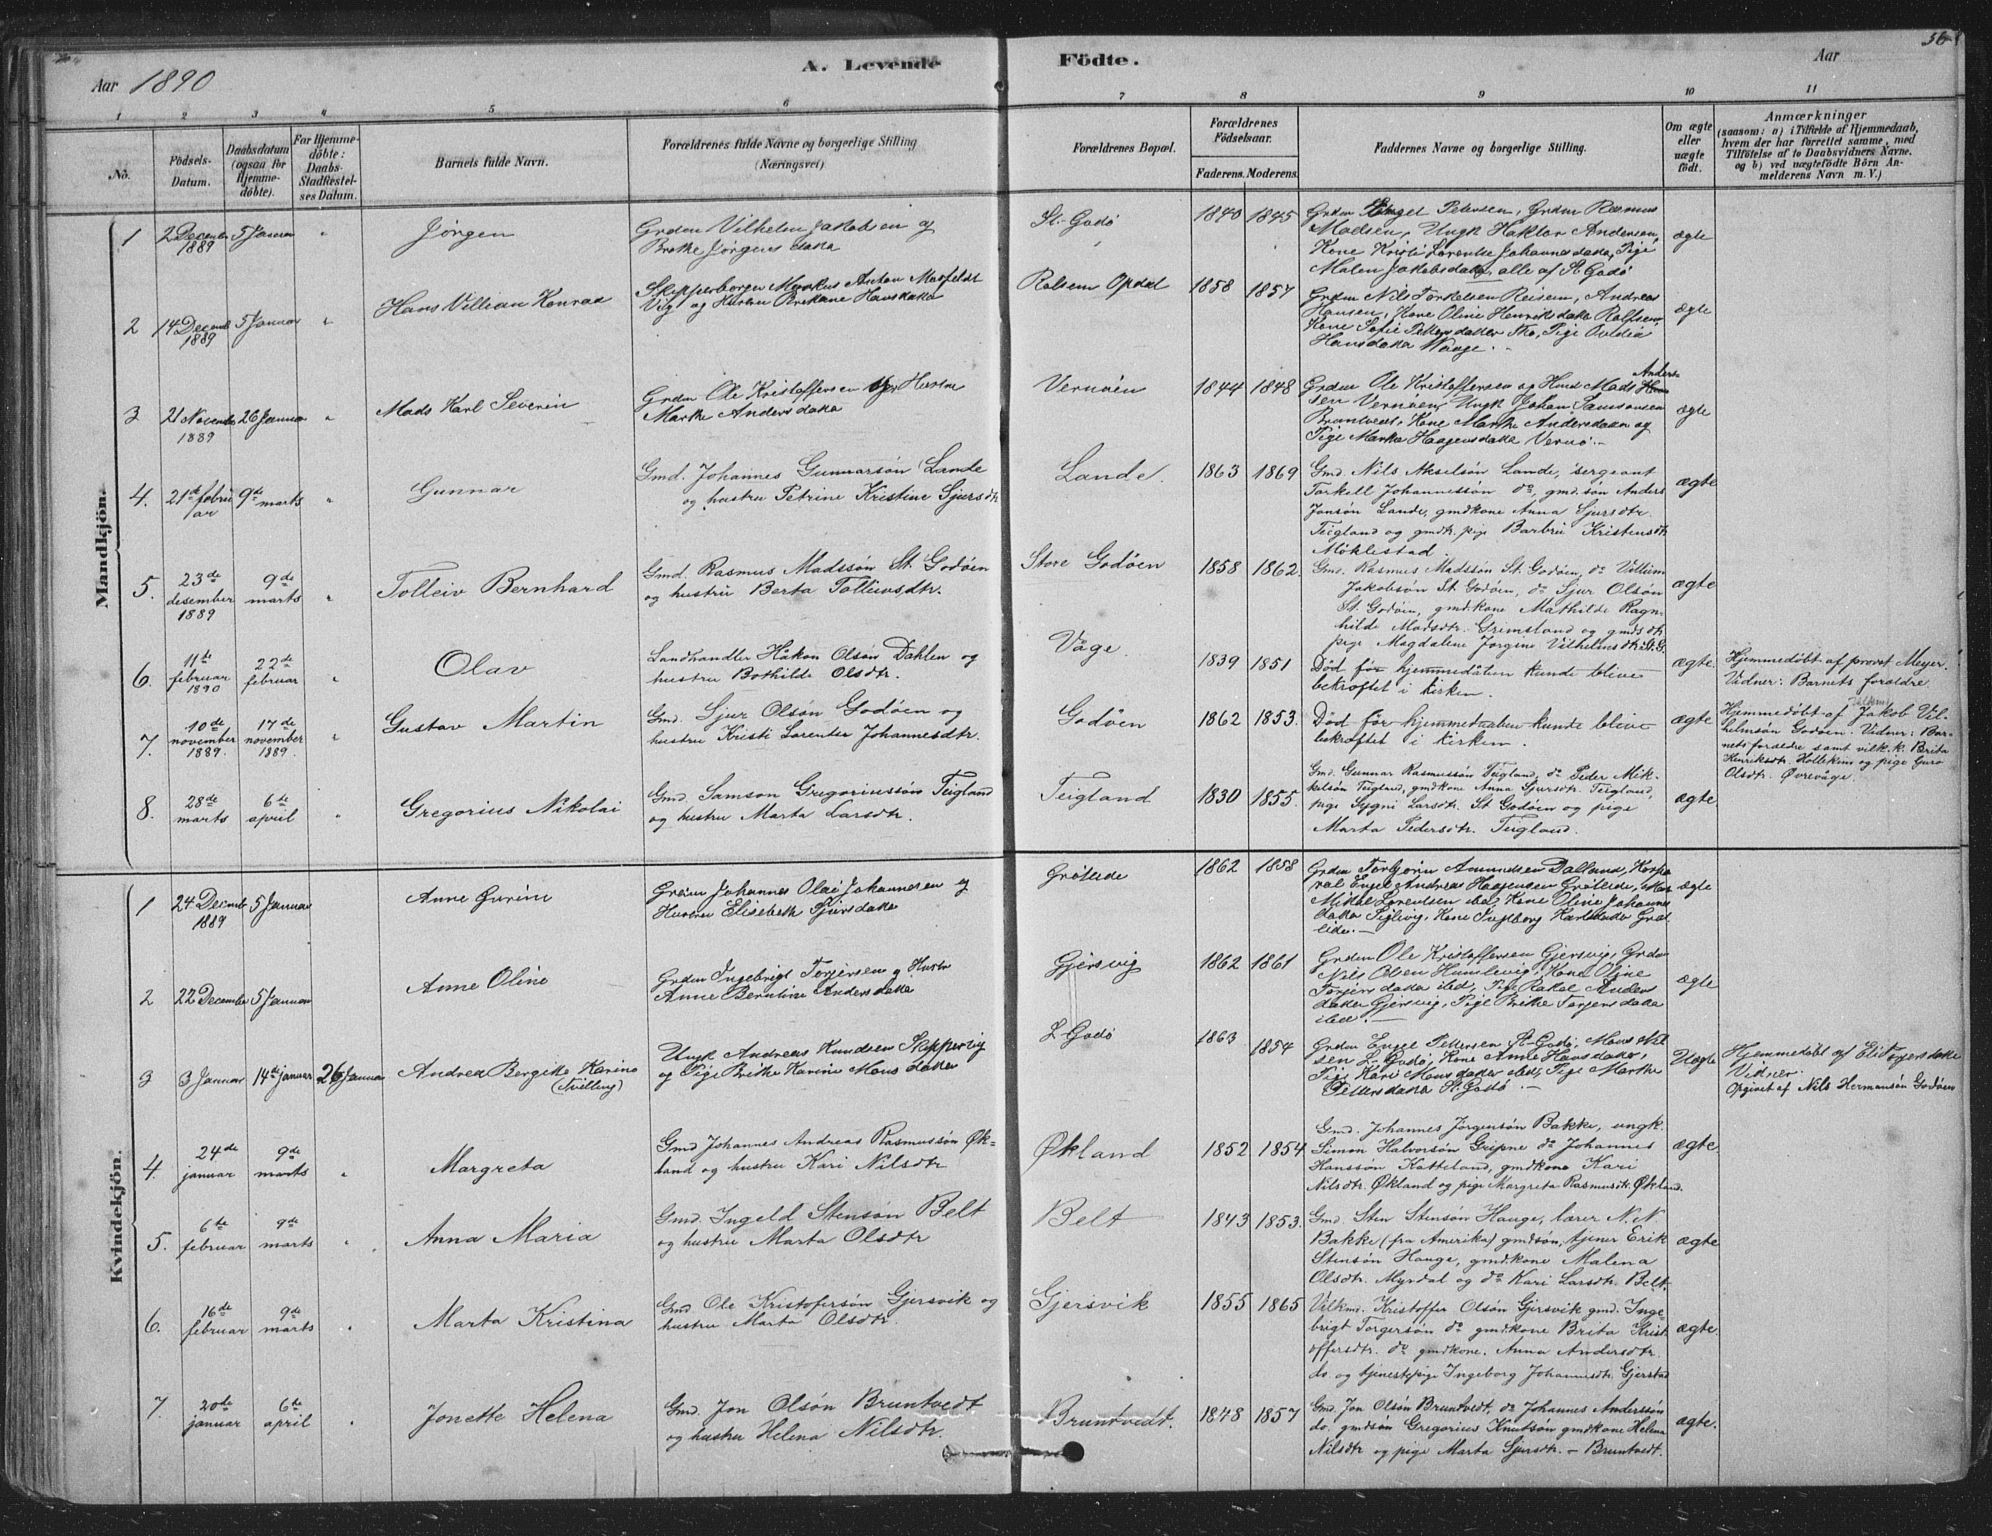 Aar 1890
A. Levende
Födte.
Aar
56
1 2 3 4 5 6 7 8 9 10 11
No.
Födsels-Datum.
Daabsdatum (ogsaa for Hjemmedöbte).
For Hjemmedöbte: Daabs-Stadfæstelses Datum.
Barnets fulde Navn.
Forældrenes fulde Navne og borgerlige Stilling (Næringsvei)
Forældrenes Bopæl.
Forældrenes Födselsaar.
Faderens. Moderens.
Faddernes Navne og borgerlige Stilling.
Om ægte eller uægte födt.
Anmærkninger
(saasom: a) i Tilfælde af Hjemmedaab, hvem der har forrettet samme, med Tilföielse af to Daabsvidners Navne. og b) ved uægtefödte Börn Anmelderens Navn m. V.)
Mandkjön.
1 2 Decemb 1889 5 Januar " Jørgen
Grdm Vilhelm Jakobsen og
Brithe Jørgensdatter
St. Godø 1840 1845
Grdm Engel Petersen, Grdm Rasmus
Madsen, Ungk Haktor Andersen,
Kone Kristi Lorentse Johannesdatter, Pige
Malen Jakobsdatter alle af St Godø
ægte
2 14 Decemb 1889 5 Januar " Hans Villian Konrad
Skipperborger Markus Anton Mosfeldt
Vig og Hustru Brithane Hansdatter
Opdal 1858 1857
Grdm Nils Torkelsen Reisem, Andreas
Hansen, Kone Oline Henriksdatter Rolfsen,
Kone Sofie Pettersdatter Tho, Pige Ovidia
Hansdatter Waage.
ægte
3 21 Novemb 1889 26 Januar " Mads Karl Severin
Grdm Ole Kristoffersen og Hustru
Marthe Andersdatter
Vernøen 1844 1848
Grdm Ole Kristoffersen og Husm Mads Anders-
sen Vernøen, Ungk Johan Samsonsen
Bruntvedt, Kone Marthe Andersdatter og
Pige Martha Haagensdatter Vernø.
ægte
4. 21de februar 9de marts " Gunnar
Gmd. Johannes Gunnarsøn Lande
og hustru Petrine Kristine Sjursdtr
Lande. 1863 1869
Gmd. Nils Akselsøn Lande, sergeant
Torkell Johannessøn do, gmd.søn Anders
Jonsøn Lande, gmdkone Anna Sjursdtr.
Teigland og gmdtr. pige Barbru Kristensdtr
Møklestad.
ægte
5. 23de desember 1889 9de marts " Tolleiv Bernhard
Gmd. Rasmus Madssøn St. Godøen
og hustru Berta Tolleivsdtr.
Store Godøen 1858 1862.
Gmd. Rasmus Madssøn St. Godøen, do Villiam
Jakobsøn St. Godøen, do Sjur Olsøn
St. Godøen, gmdkone Mathilde Ragn-
hilde Madsdtr. Grimsland og gmds dtr
pige Magdalene Jørgine Vilhelmsdtr. St. G.
ægte
6. 11te februar 1890 22de februar " Olav
Landhandler Håkon Olsøn Dahlen og
hustru Bothilde Olsdtr.
Våge. 1839 1851
Død før hjemmedåben kunde blive
bekræftet i kirken.
ægte.
Hjemmedøbt af provst Meyer.
Vidner: Barnets forældre.
7. 10de november 1889. 17de november 1889. " Gustav Martin
Gmd. Sjur Olsøn Godøen og
hustru Kristi Lorentse Johannesdtr.
Godøen 1862 1853.
Død før hjemmedaaben kunde blive
bekræftet i kirken.
ægte
Hjemmedøbt af Jakob Vil-
helmsøn Godøen. Vidner: Bar-
nets forældre samt vilk.k. Brita
Henriksdtr. Hollekim og pige Guro
Olsdtr. Øvrevåge.
8. 28de marts 6te april " Gregorius Nikolai
Gmd. Samson Gregoriussøn Teigland
og hustru Marta Larsdtr.
Teigland 1830 1855.
Gmd. Gunnar Rasmussøn Teigland, do Peder Mik-
kelsøn Teigland, gmdkone Anna Sjursdtr. Teigland,
pige Sygni Larsdtr. St Godøen og pige
Marta Pedersdtr. Teigland.
ægte
Kvindekjön.
1 24 Decemb 1889 5 Januar Anne Gurine
Grdm Johannes Olai Johannesen og
Hustru Elisebeth Sjursdatter
Grøteide 1862 1858
Grdm Torbjørn Amundsen Dalland, Korpo
ral Engel Andreas Haagensen Grøteide,
Mikal Lorentsen ibd, Kone Oline Johannes
datter Teglevig, Kone Ingeborg Karlsdatter Grøt
eide.
ægte
2 22 December 5 Januar Anne Oline
Grdm Ingebrigt Torjersen og Hustr
Anne Berntine Andersdatter
Gjersvig 1862 1861
Grdm Ole Kristoffersen Gjersvig, Grdm
Nils Olsen Humlevig, Kone Oline
Torjersdatter ibed, Pige Rakel Anders
datter Gjersvig, Pige Brithe Torjersdatter
ibed.
ægte
3 3 Januar 14de januar 26 Januar Andrea Bergithe Karine
(Tvilling)
Ungk Andreas Knudsen Skippervig
og Pige Brithe Karine Monsdatter
L Godø 1863 1854
Grdm Engel Pettersen St. Godø, Mons Nil
sen L. Godø, Kone Anne Hansdatter,
Pige Kari Monsdatter ibed, Pige Marthe
Pettersdatter St. Godø.
Uægte
Hjemmedøbt af Eli Torjersdatter
Vidner.
Opgivet af Nils Hermansøn Godøen
4. 24de januar 9de marts " Margreta
Gmd Johannes Andreas Rasmussøn Øk-
land og hustru Kari Nilsdtr
Økland 1852 1854
Gmd. Johannes Jørgensøn Bakke, ungk.
Simon Halvorsøn Gripne do Johannes
Hanssøn Katteland, gmdkone Kari
Nilsdtr. Økland og pige Margreta Rasmusdtr. Økland.
ægte.
5. 6te februar 9de marts " Anna Maria
Gmd. Ingeld Stensøn Belt
og hustru Marta Olsdtr
Belt 1843 1853.
Gmd. Sten Stensøn Hauge, lærer N. N.
Bakke (fra Amerika) gmdsøn, tjener Erik
Stensøn Hauge, gmdkone Malena
Olsdtr. Myrdal og do Kari Larsdtr. Belt.
ægte
6. 16de februar 9de marts " Marta Kristina
Gmd. Ole Kristofersøn Gjersvik og
hustru Marta Olsdtr
Gjersvik 1855 1865
Vilkmd. Kristoffer Olsøn Gjersvik gmd. Inge-
brigt Torgersøn do gmdkone Brita Krist
offersdtr. do gmdkone. Anna Andersdtr.
do. og tjenestepige Ingeborg Johannesdtr Gjerstad
ægte.
7. 20de januar 6te april " Jonette Helena
Gmd. Jon Olsøn Bruntvedt
og hustru Helena Nilsdtr.
Bruntvedt. 1848 1857
Gmd. Jon Olsøn Bruntvedt, do Johannes Anderssøn
do. gmdsøn Gregorius Knutsøn gmdkone Helena
Nilsdtr og pige Marta Sjursdtr. – Bruntvedt.
ægte.